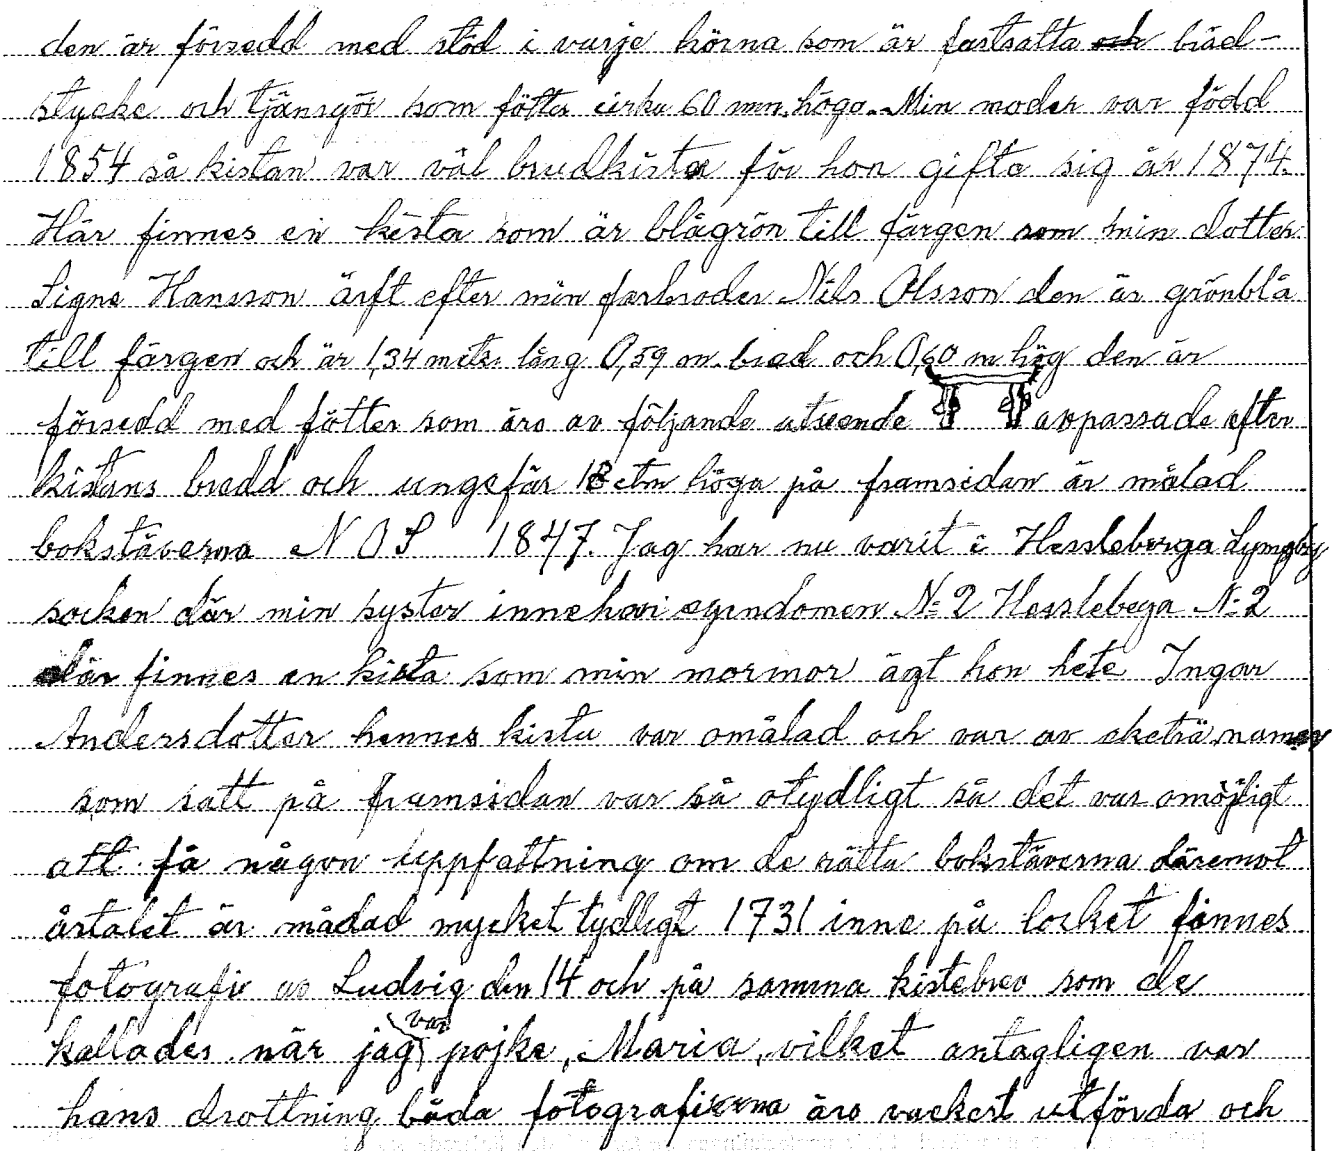 den är försedd med stöd i varje hörna som är fastsatta och bräd-
stycke och tjänsgör som fötter cirka 60 mm. höga. Min moder var född
1854 så kistan var väl brudkista för hon gifta sig år 1874.
Här finnes en kista som är blågrön till färgen som min dotter
Signe Hansson ärft efter min farbroder Nils Olsson den är grönblå
till färgen och är 1,34 metr. lång 0,59 m. bred och 0,60 m hög den är
försedd med fötter som äro av följande utseende avpassade efter
kistans bredd och ungefär 18 ctm höga på framsidan är målad
bokstäverna N O S 1847. Jag har nu varit i Hessleberga Lyngby
socken där min syster innehavi egendomen N:2 Hesslebega N:2
där finnes en kista som min mormor ägt hon hete Ingar
Andersdotter hennes kista var omålad och var av eketrä, namen
som satt på framsidan var så otydligt så det var omöjligt
att få någon uppfattning om de rätta bokstäverna däremot
årtalet är målad mycket tydligt 1731 inne på locket finnes
fotografi av Ludvig den 14 och på samma kistebrev som de
kallades när jag var pojke, Maria, vilket antagligen var
hans drottning båda fotografierna äro vackert utförda och